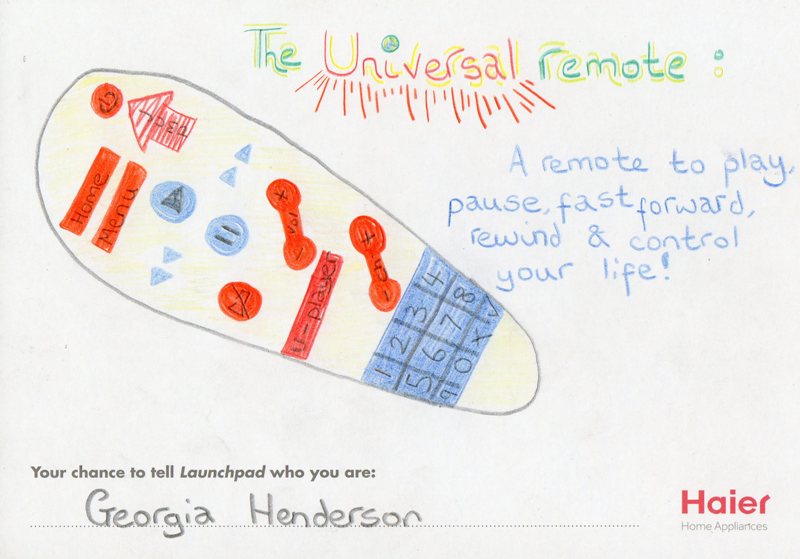 The Universal remote :
A remote to play,
pause, fast forward,
rewind & control
your life!
Home
Menu
+ vol -
+ ch -
U-player
1 2 3 4
5 6 7 8
9 0 X √
Your chance to tell Launchpad who you are:
Georgia Henderson
Haier
Home Appliances